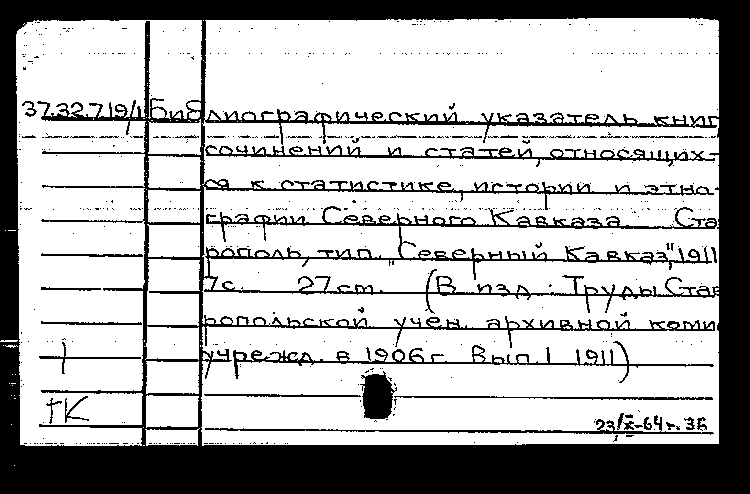 37.32.719/1 Библиографический указатель книг
сочинений и статей, относящих-
ся к статистике, истории и этно-
графии Северного Кавказа Ста
рополь, тип. "Северный Кавказ", 1911
7с. 27 ст. (В изд: Труды Став
ропольской учен. архивной коми
учрежд. в 1906 г Вып. 1 1911)
1
тК
23/X-64 г. ЗБ